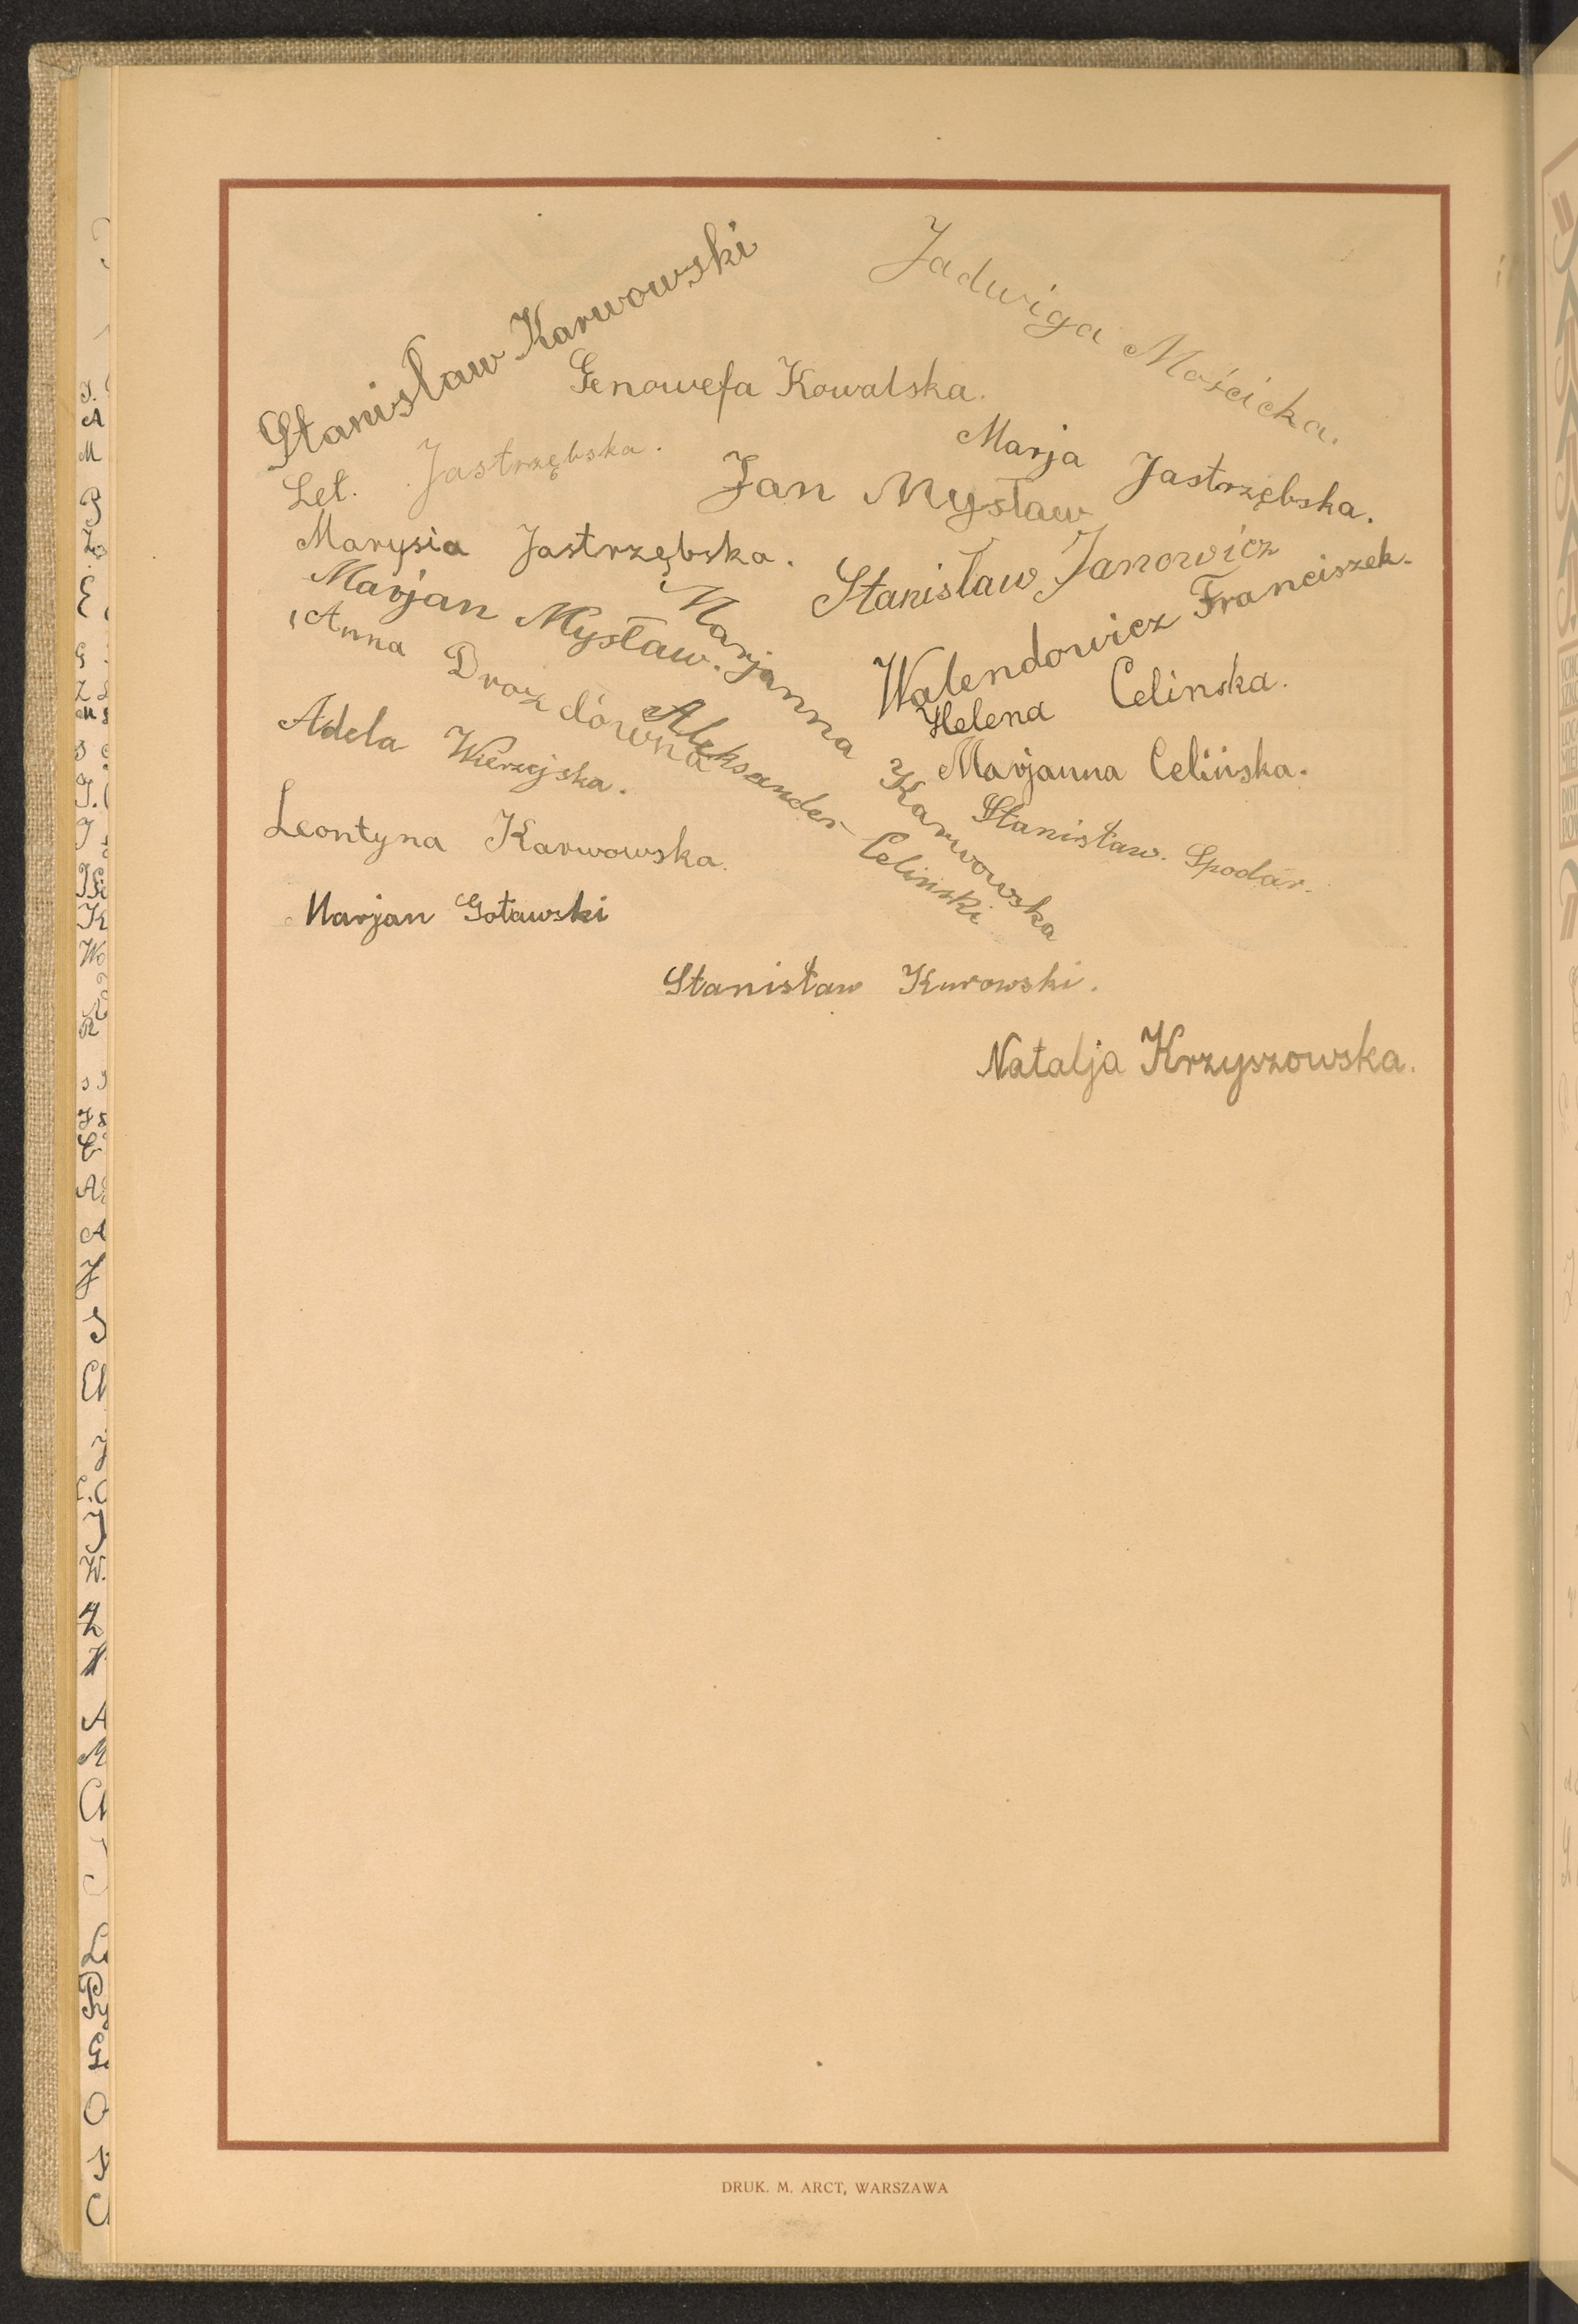 Stanisław Karwowski
Jadwiga Mościcka.
Genowefa Kowalska.
Let. Jastrzębska.
Marja Jastrzębska.
Jan Mysław
Marysia Jastrzębska.
Stanisław Janowicz
Marjan Mysław.
Marjanna Karwowska
Walendowicz Franciszek.
Anna Drozdówna
Helena Celinska.
Adela Wierzejska.
Aleksander Celinski
Marjanna Celińska.
Stanisław. Spodar.
Leontyna Karwowska.
Marjan Gotawski
Stanisław Kurowski.
Natalja Krzyszowska.
DRUK. M. ARCT, WARSZAWA